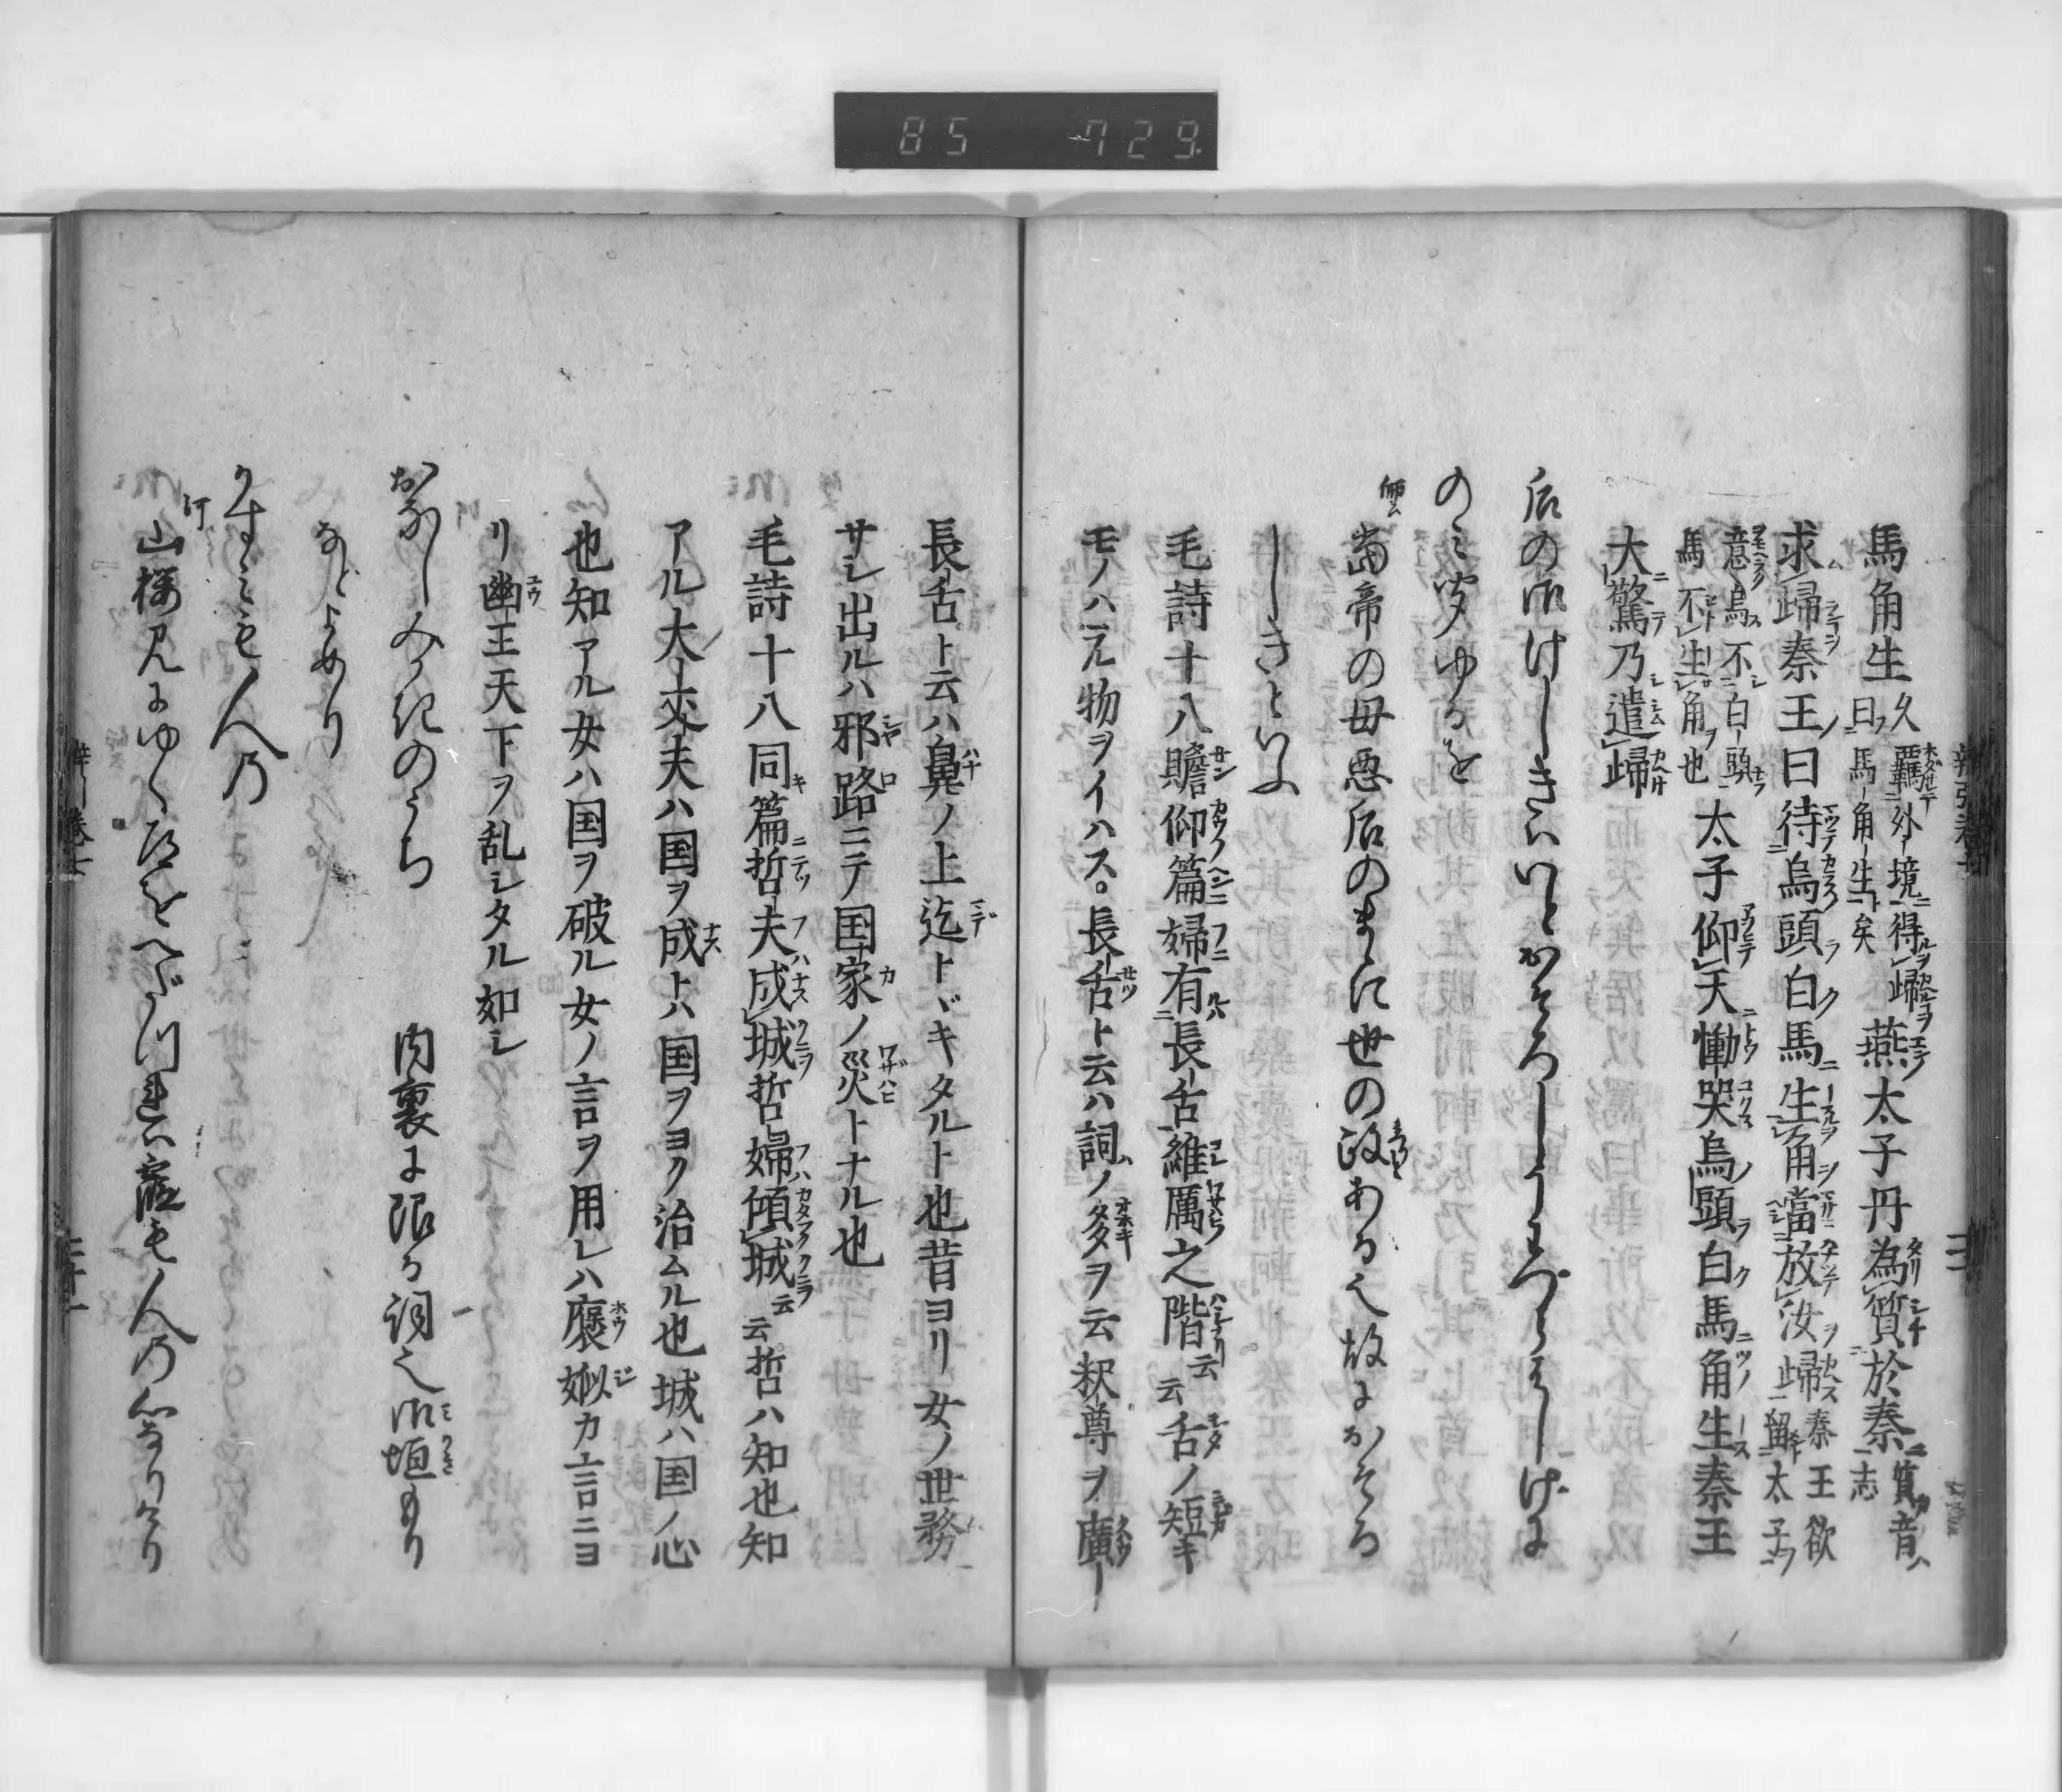 85 729
馬角生 久羈外境得歸 燕太子丹為質於秦 質音
曰馬角生矣 志
求歸秦王曰待烏頭白馬生角當放汝歸 秦王欲
留太子
意烏不白頭
馬不生角也 太子仰天慟哭烏頭白馬角生秦王
大驚乃遣歸
后の御けしきはいとおそろしうわづらはしげに
のみ聞ゆるを
師 当帝の母悪后のまゝに世の政ある也故におそろ
しきといふ
毛詩十八瞻仰篇婦有長舌維厲之階云云舌ノ短キ
モノハヱ物ヲイハス。長舌ト云ハ詞ノ多ヲ云釈尊ヲ廣
長舌ト云ハ鼻ノ上迄トヾキタルト也昔ヨリ女ノ世務
サシ出ルハ邪路ニテ国家ノ災トナル也
毛詩十八同篇哲夫成城哲婦傾城云云哲ハ知也知
アル大丈夫ハ国ヲ成トハ国ヲヨク治ムル也城ハ国ノ心
也知アル女ハ国ヲ破ル女ノ言ヲ用レハ褒姒カ言ニヨ
リ幽王天下ヲ乱シタル如シ
おなしみかきのうち 内裏に限る詞也御垣もり
なとよめり
かすみも人の
河 山桜見にゆく道をへだつれは霞も人の心なりけり